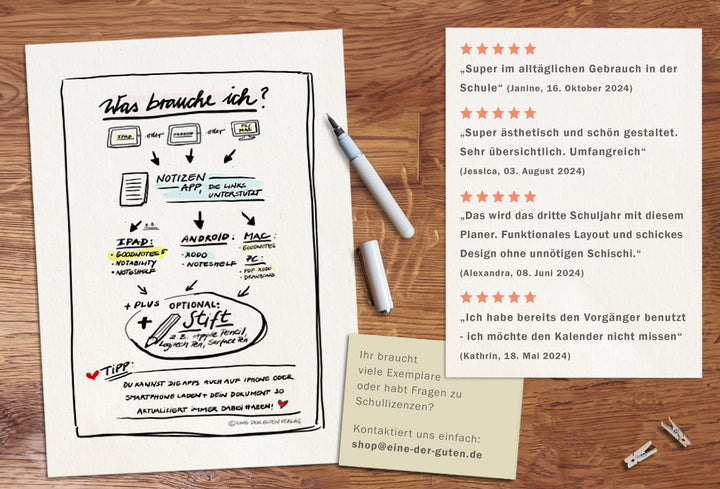 Was brauche ich?
IPAD oder ANDROID oder PC/MAC
NOTIZEN
APP, DIE LINKS
UNTERSTÜTZT
z.B.
IPAD: ANDROID: MAC:
• GOODNOTES 5
• NOTABILITY
• NOTESHELF
• XODO
• NOTESHELF
• GOODNOTES
PC:
• PDF XODO
• DRAWBOARD
+ PLUS OPTIONAL:
+ Stift
z.B. Apple Pencil,
Logitech Pen, Surface Pen
TIPP:
DU KANNST DIE APPS AUCH AUF IPHONE ODER
SMARTPHONE LADEN + DEIN DOKUMENT SO
AKTUALISIERT IMMER DABEI HABEN!
© EINE DER GUTEN VERLAG
„Super im alltäglichen Gebrauch in der
Schule“ (Janine, 16. Oktober 2024)
„Super ästhetisch und schön gestaltet.
Sehr übersichtlich. Umfangreich“
(Jessica, 03. August 2024)
„Das wird das dritte Schuljahr mit diesem
Planer. Funktionales Layout und schickes
Design ohne unnötigen Schischi.“
(Alexandra, 08. Juni 2024)
„Ich habe bereits den Vorgänger benutzt
- ich möchte den Kalender nicht missen“
(Kathrin, 18. Mai 2024)
Ihr braucht
viele Exemplare
oder habt Fragen zu
Schullizenzen?
Kontaktiert uns einfach:
shop@eine-der-guten.de